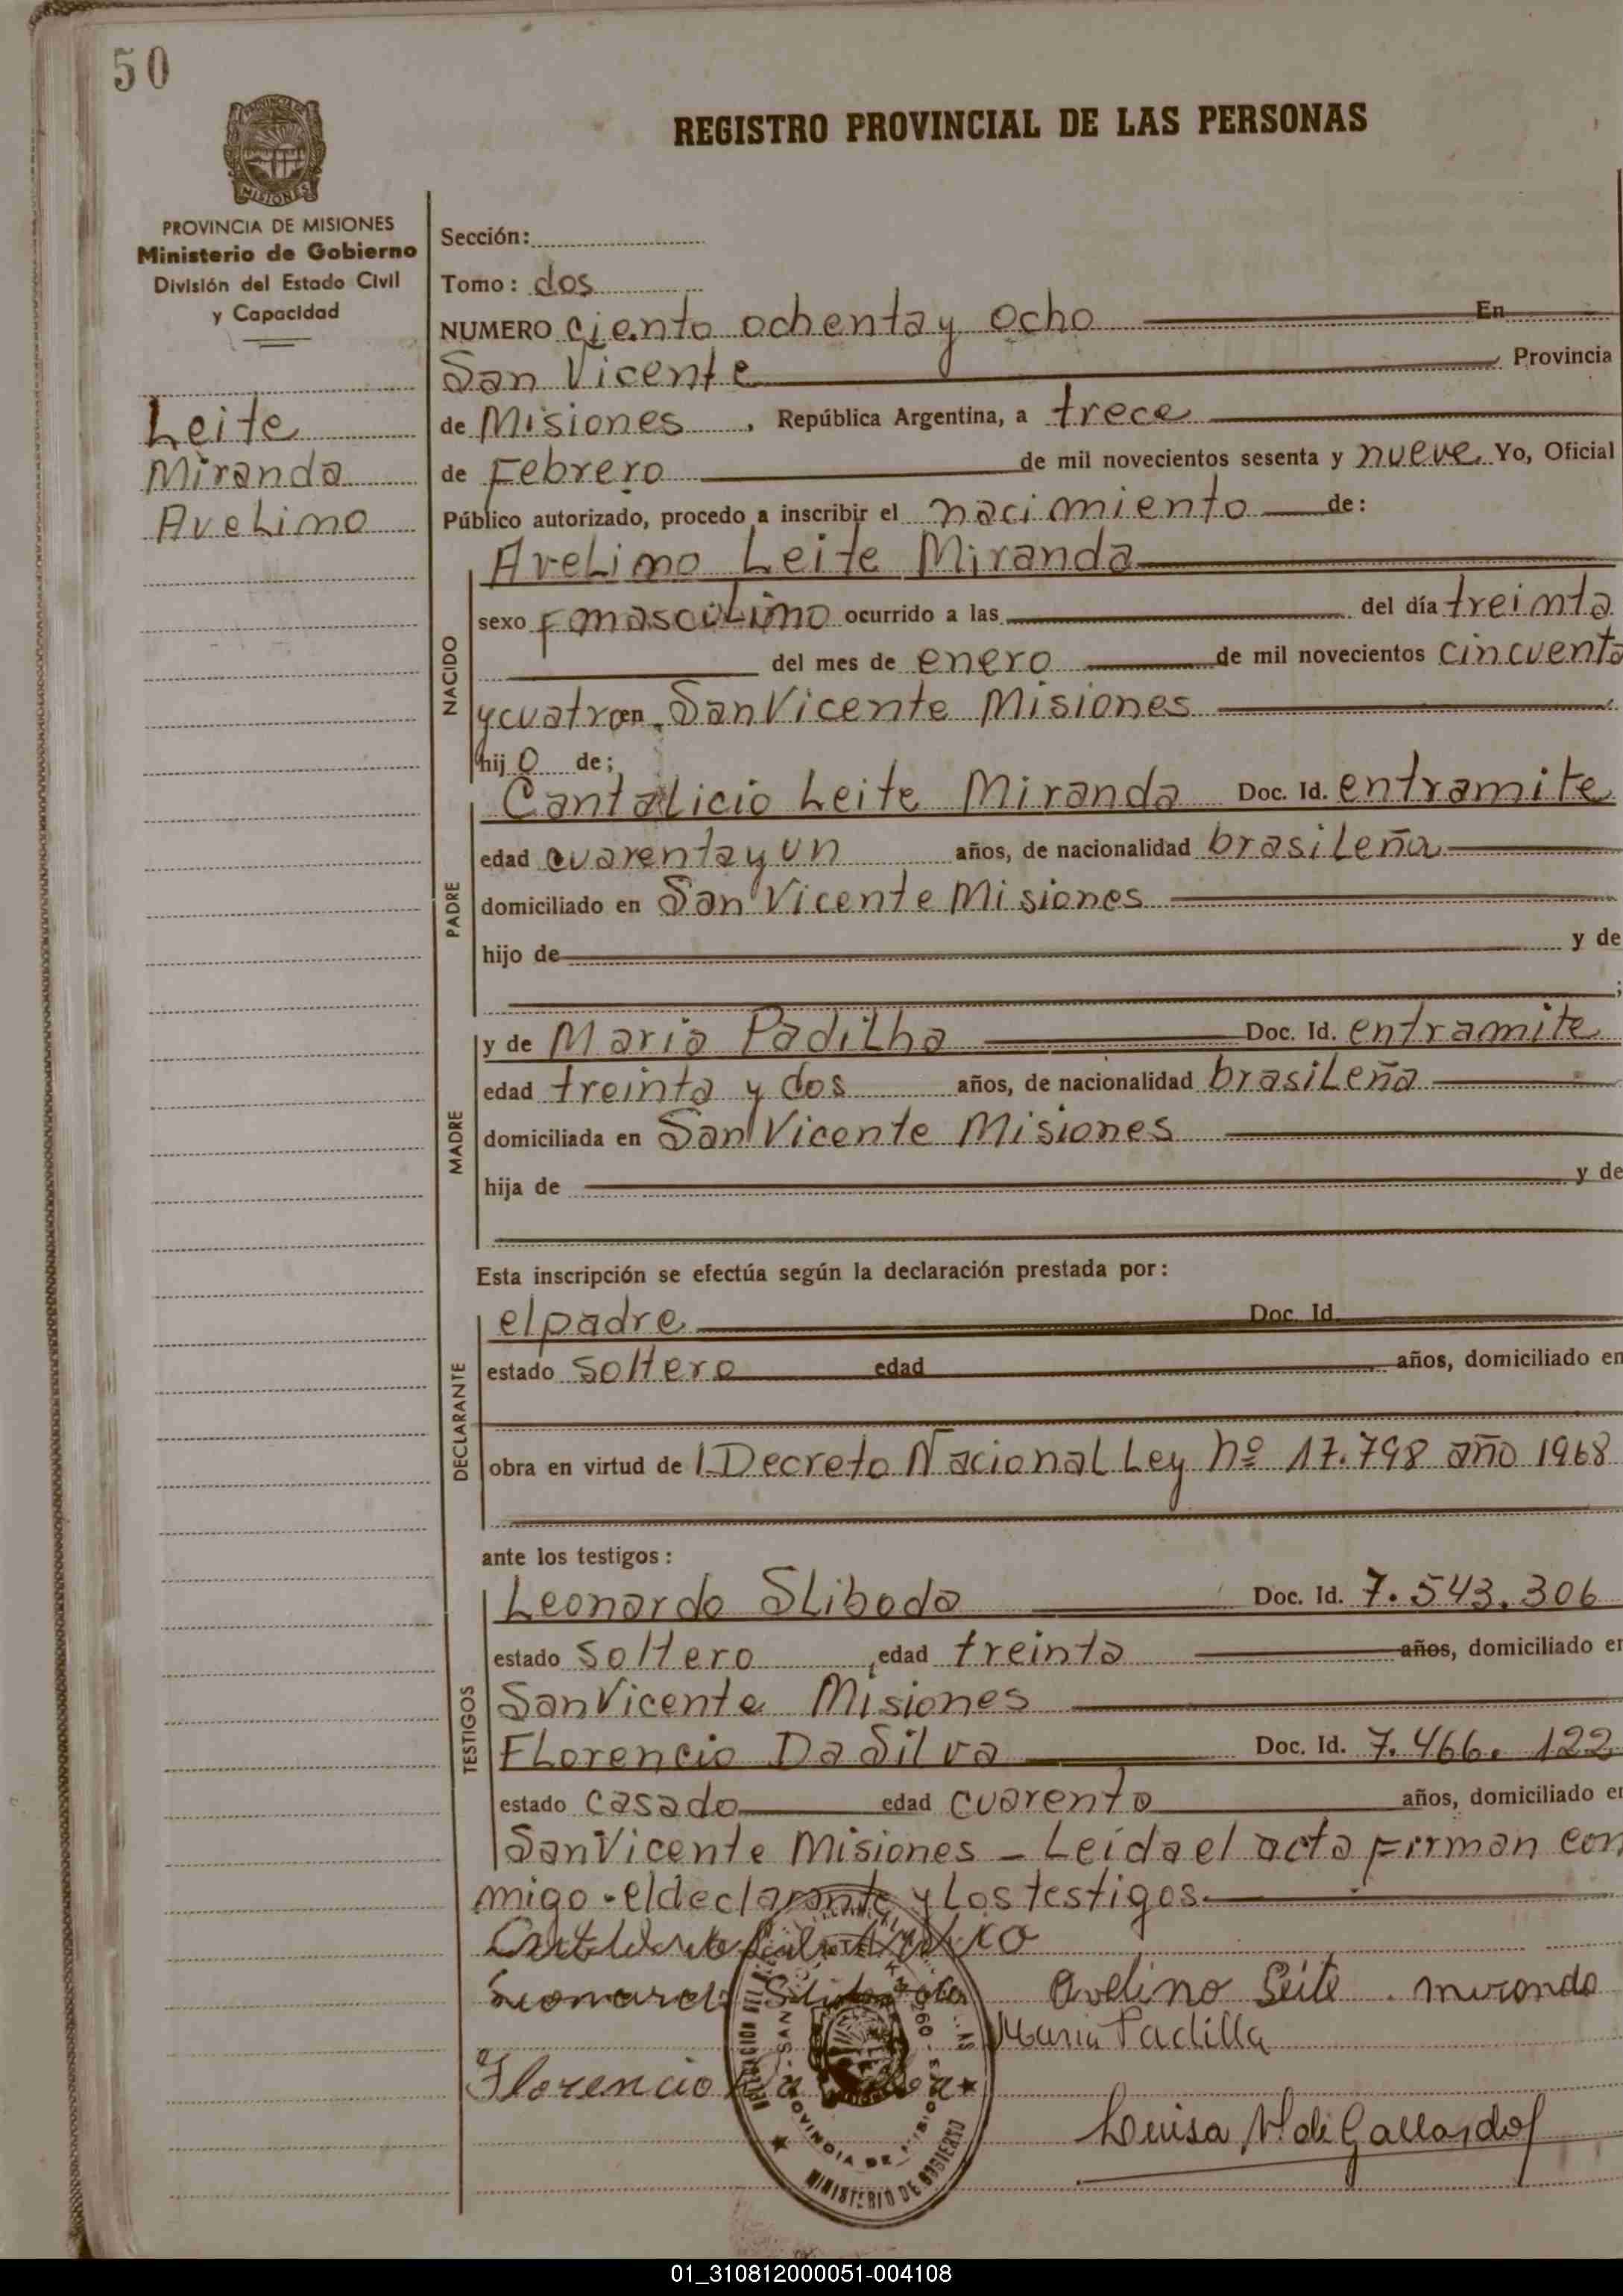 50
MISIONES
REGISTRO PROVINCIAL DE LAS PERSONAS
PROVINCIA DE MISIONES
Ministerio de Gobierno
División del Estado Civil
y Capacidad
Leite
Miranda
Avelimo
Sección:
Tomo: dos
NUMERO ciento ochenta y ocho En
San Vicente Provincia
de Misiones, República Argentina, a trece
de Febrero de mil novecientos sesenta y nueve Yo, Oficial
Público autorizado, procedo a inscribir el nacimiento de:
NACIDO
Avelimo Leite Miranda
sexo F masculimo ocurrido a las del día treinta
del mes de enero de mil novecientos cincuenta
y cuatro en San Vicente Misiones
hijo de;
PADRE
Cantalicio Leite Miranda Doc. Id. entramite
edad cuarenta y un años, de nacionalidad brasileña
domiciliado en San Vicente Misiones
hijo de y de
;
MADRE
y de Maria Padilha Doc. Id. entramite
edad treinta y dos años, de nacionalidad brasileña
domiciliada en San Vicente Misiones
hija de y de
Esta inscripción se efectúa según la declaración prestada por:
DECLARANTE
el padre Doc. Id.
estado soltero edad años, domiciliado en
obra en virtud de l-Decreto Nacional Ley nº 17.798 año 1968
ante los testigos:
TESTIGOS
Leonardo Sliboda Doc. Id. 7.543.306
estado soltero, edad treinta años, domiciliado en
San Vicente Misiones
Florencio Da Silva Doc. Id. 7.466.122
estado casado edad cuarenta años, domiciliado en
San Vicente Misiones - Leida el acta firman con
migo - el declarante y los testigos.
Avelino Leite miranda
Maria Padilla
Florencio Da
Luisa de Gallardo
PROVINCIA DE MISIONES
MINISTERIO DE GOBIERNO
01_310812000051-004108